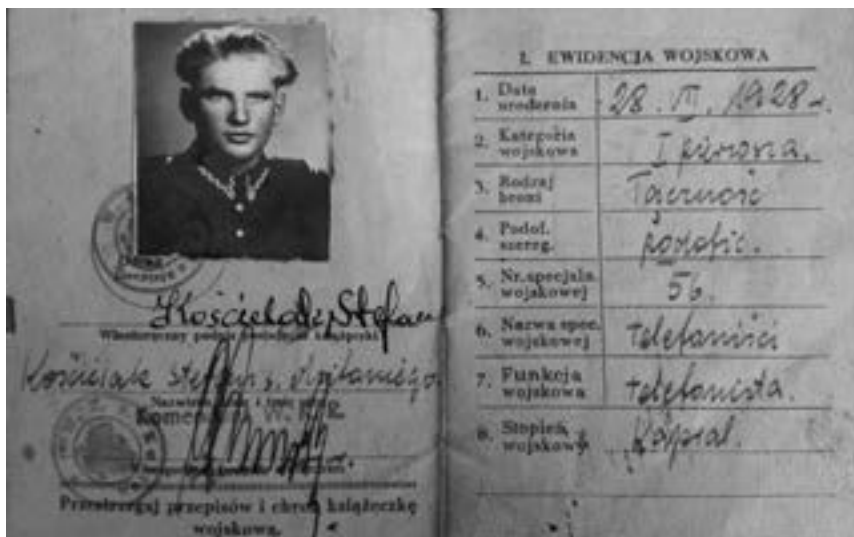 Kościelak Stefan
Własnoręczny podpis posiadacza książeczki
Kościelak Stefan s.
Nazwisko i imię
Komendant W.K.R.
Przestrzegaj przepisów i chroń książeczkę
wojskową.
I. EWIDENCJA WOJSKOWA
1. Data urodzenia 28. III. 1928 r.
2. Kategoria wojskowa I pierwsza.
3. Rodzaj broni Łączność
4. Podof. szereg. podofic.
5. Nr. specjaln. wojskowej 56.
6. Nazwa spec. wojskowej telefoniści
7. Funkcja wojskowa telefonista.
8. Stopień wojskowy Kapral.